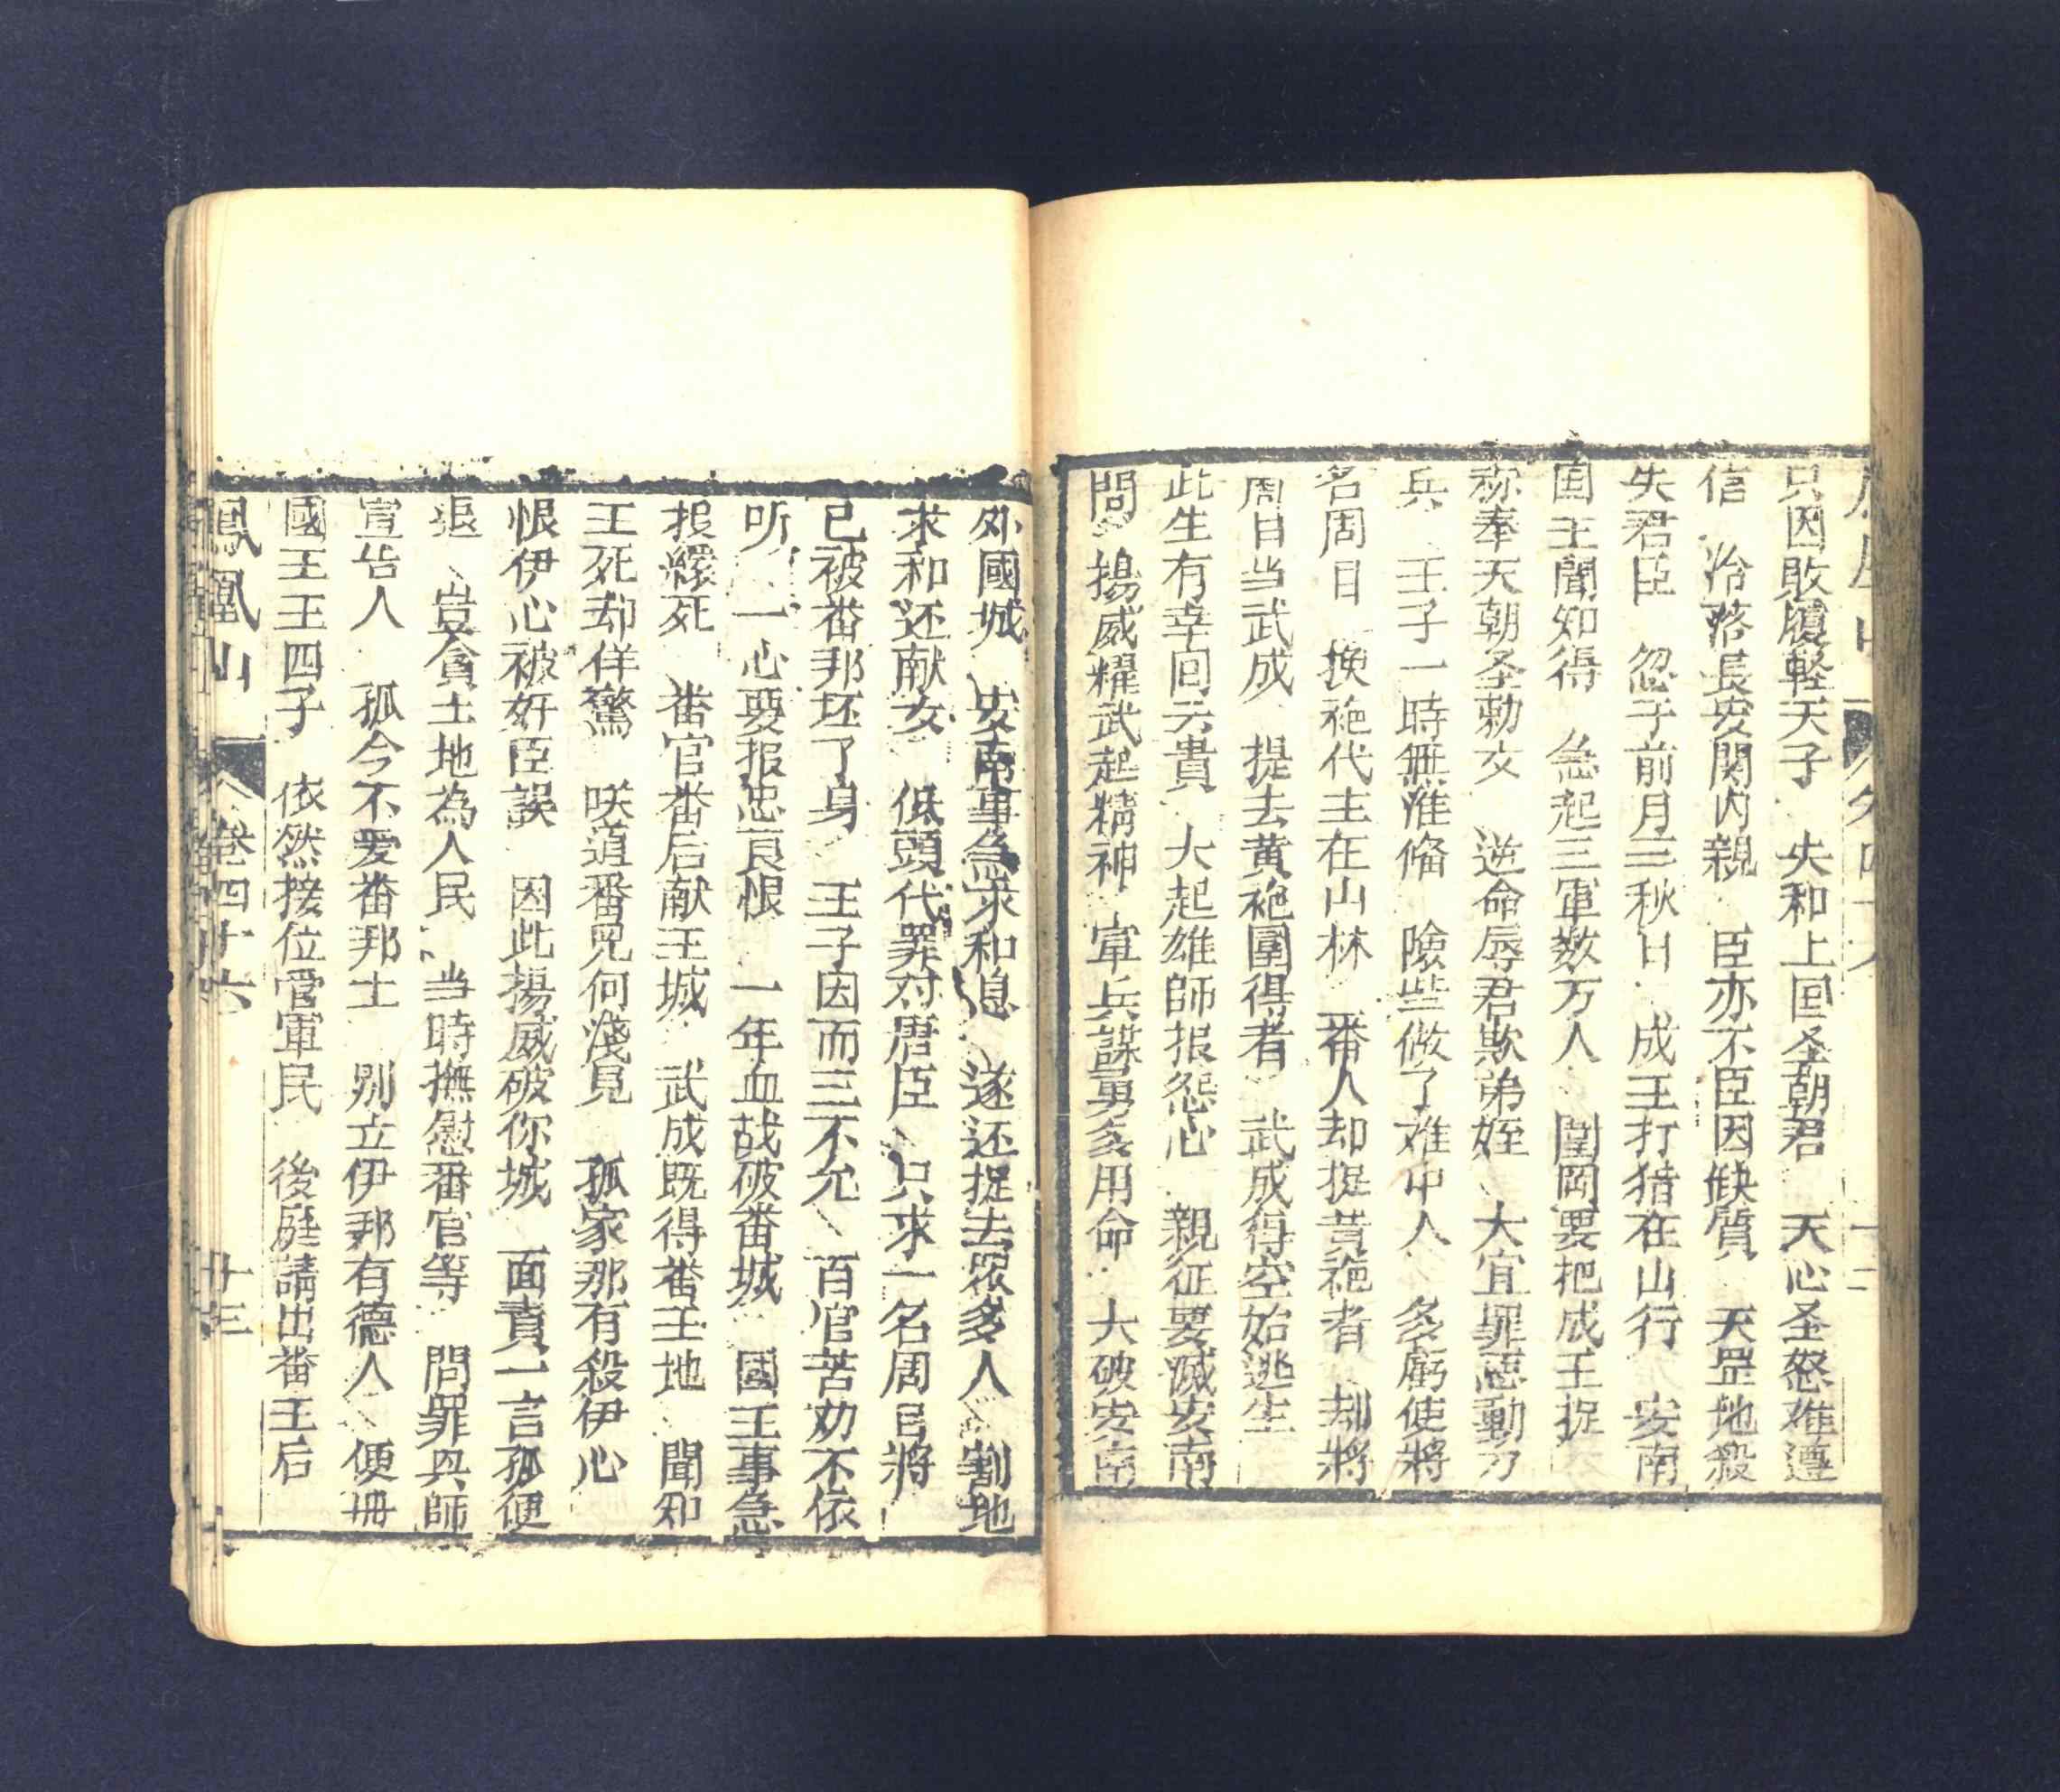 只因敗履軽天子　失和上囯圣朝君　天心圣怒难遵
信　冷落長安関内親　臣亦不臣因缺質　天罡地殺
失君臣　忽于前月三秋日　成王打猎在山行　安南
国王聞知得　急起三軍数万人　圍岡要把成王捉
称奉天朝圣勅文　逆命辱君欺弟姪　大宜罪惡動刀
兵　王子一時無准俻　險些做了难中人　多虧使將
名周日　換袍代主在山林　番人却捉黄袍者　刼將
周日当武成　提去黄袍圍得者　武成得空始逃生
此生有幸回云貴　大起雄師报怨心　親征要滅安南
問　揚威耀武起精神　軍兵謀勇多用命　大破安南
外國城　安南事急求和息　遂还捉去眾多人　割地
求和还献女　低頭代罪対唐臣　只求一名周日將
已被畨邦坯了身　王子因而三不允　百官苦劝不依
听　一心要报忠良恨　一年血战破畨城　國王事急
投繯死　畨官畨后献王城　武成既得畨王地　聞知
王死却佯驚　咲道番兄何淺見　孤家那有殺伊心
恨伊心被奸臣誤　因此揚威破你城　面責一言孤便
退　豈貪土地為人民　当時撫慰番官等　問罪興師
宣告人　孤今不爱畨邦土　别立伊邦有德人　便冊
國王王四子　依然接位管軍民　後庭請出畨王后
鳳凰山　卷四十六　廿三